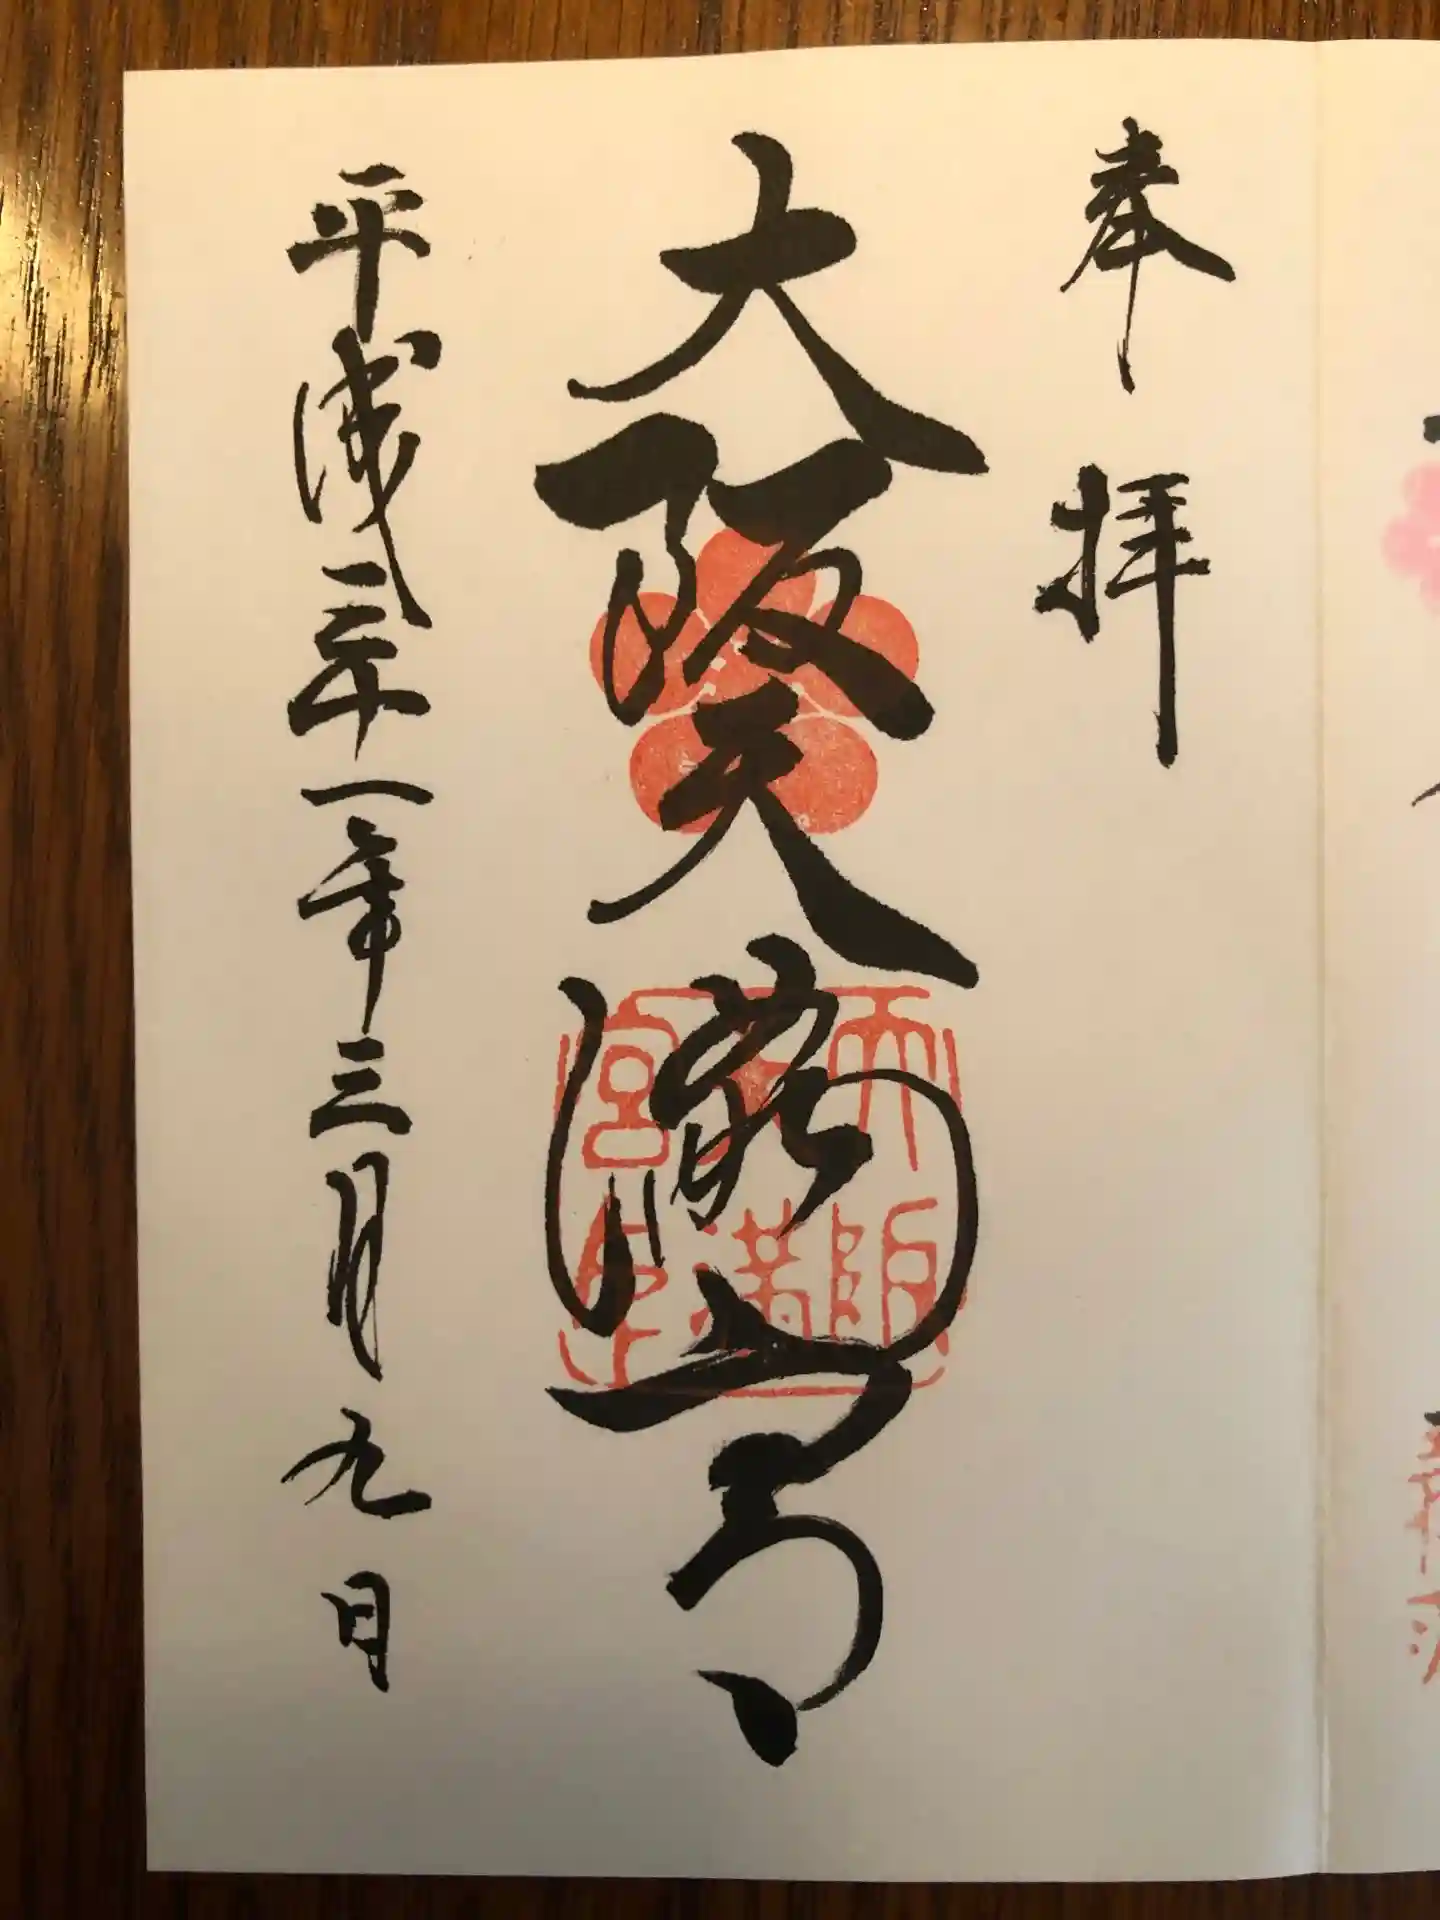 奉拝
大阪天満宮
平成三十一年三月九日
大阪
天満
宮